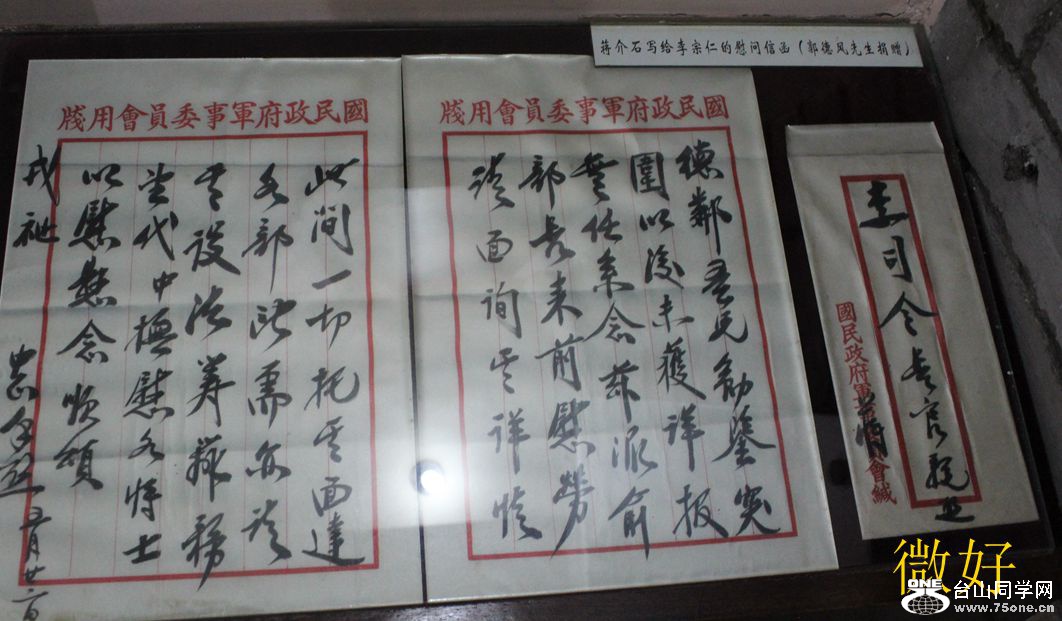 蒋介石写给李宗仁的慰问信函（郭德风先生捐赠）
國民政府軍事委員會用牋
德鄰吾兄勛鑒突
圍以後未獲詳報
無任系念茲派俞
部長来前慰勞
請面詢其詳情
國民政府軍事委員會用牋
此間一切托其面達
各部所需亦請
其設法籌辦務
望代中撫慰各將士
以慰懸念順頌
戎祉
五月廿二日
李司令長官親啟
國民政府軍
蔣
會緘
微好
ONE
台山同学网
www.75one.cn